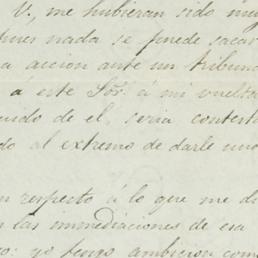 V., me hubieran sido muy
pues nada se puede sacar
a accion ante un tribuna
á este Sor. á mi vuelta
uido de el, seria contesta
do al extremo de darle una
n respecto á lo que me di
n las immediaciones de esa
yo tengo ambicion com